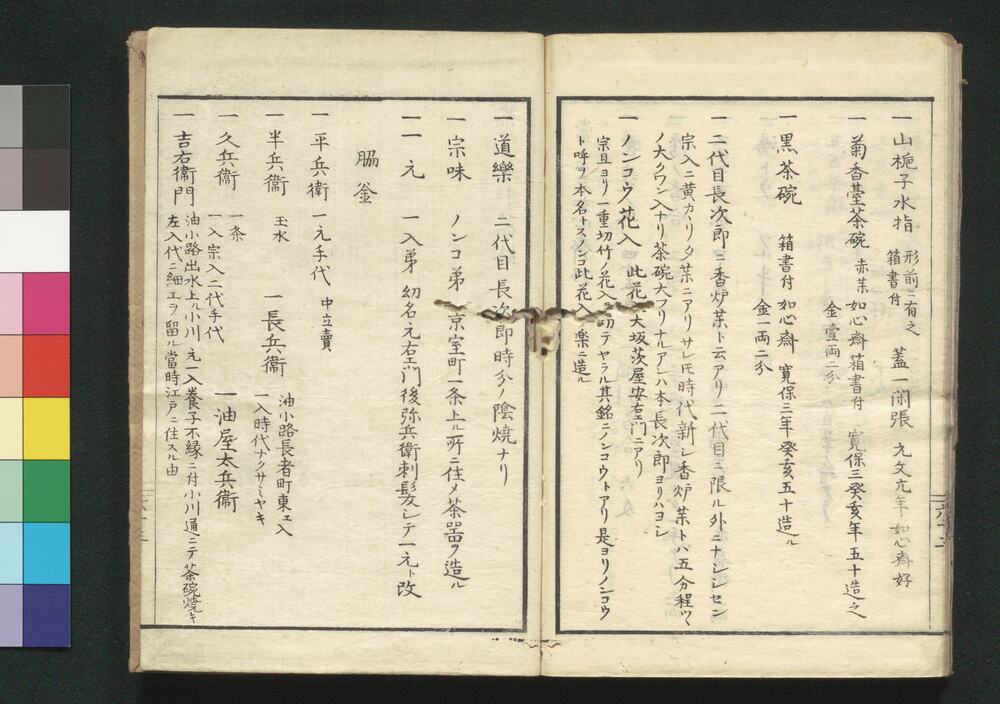 一山梔子水指 形前ニ有之
箱書付 蓋一閑張 元文元年 如心斎好
一菊香臺茶碗 赤茶 如心斎箱書付 寛保三癸亥年五十造之
金壹両二分
一黒茶碗 箱書付 如心斎 寛保三年癸亥五十造ル
金一両二分
一二代目長次郎ニ香炉茶ト云アリ二代目ニ限ル外ニナシシセン
宗入ニ黄カハリタ茶ニアリサレ𪜈時代新シ香炉茶トハ五分程ツヽ
ノ大クワン入ナリ茶碗大フリナルアレハ本長次郎ヨリハヨシ
一ノンコウ花入 此花入大坂茨屋安右エ門ニアリ
宗旦ヨリ一重切竹ノ花入ヲ切テヤラル其銘ニノンコウトアリ是ヨリノンコウ
ト呼フ本名トスノンコ此花入楽ニ造ル
一道樂 二代目長次郎時分ノ陰焼ナリ
一宗味 ノンコ弟 京室町一条上ル所ニ住メ茶器ヲ造ル
一一元 一入弟 幼名元右エ門後弥兵衛剃髪シテ一元ト改
脇釜
一平兵衛 一元手代 中立賣
一半兵衞 玉水 一長兵衞 油小路長者町東エ入
一入時代ナクサミヤキ
一久兵衞 一条
一入宗入二代手代 一油屋太兵衞
一吉右衞門 油小路出水上ル小川 元一入養子不縁ニ付小川通ニテ茶碗焼キ
左入代ニ細エヲ留ル當時江戸ニ住スル由
六十二